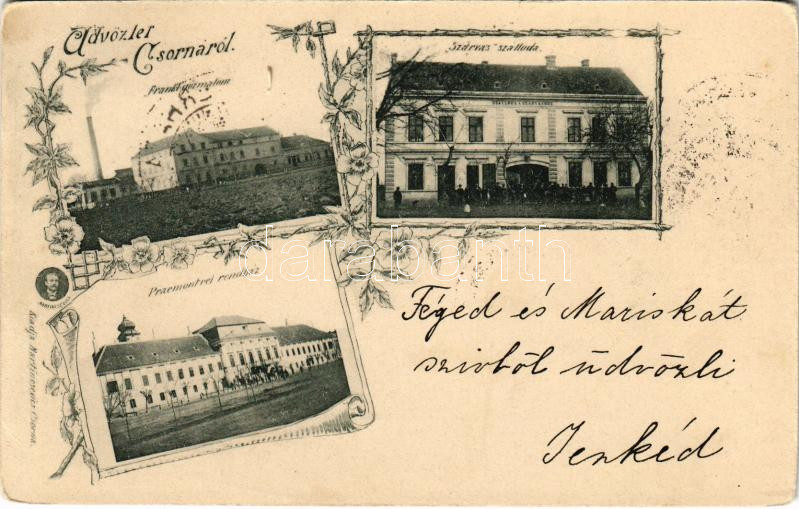 Üdvözlet
Csornáról.
Frankl gőzmalom
"Szarvas" szálloda.
darabanth
Praemontrei rendház
Kiadja Martincsevics Csorna.
Téged és Mariskát
szivből üdvözli
Jenkéd